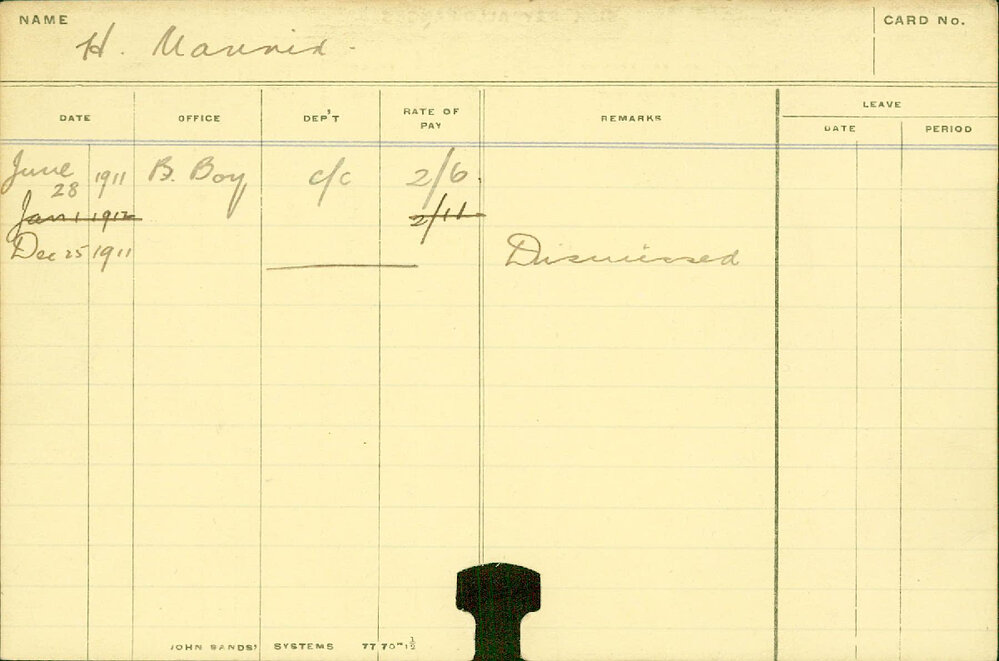 NAME
H. Mannix
CARD No.
DATE
OFFICE
DEP'T
RATE OF PAY
REMARKS
LEAVE
DATE
PERIOD
June 28 1911 B. Boy c/c 2/6.
Jan 1 1912 2/11
Dec 25 1911 Dismissed
JOHN SANDS' SYSTEMS 77 70